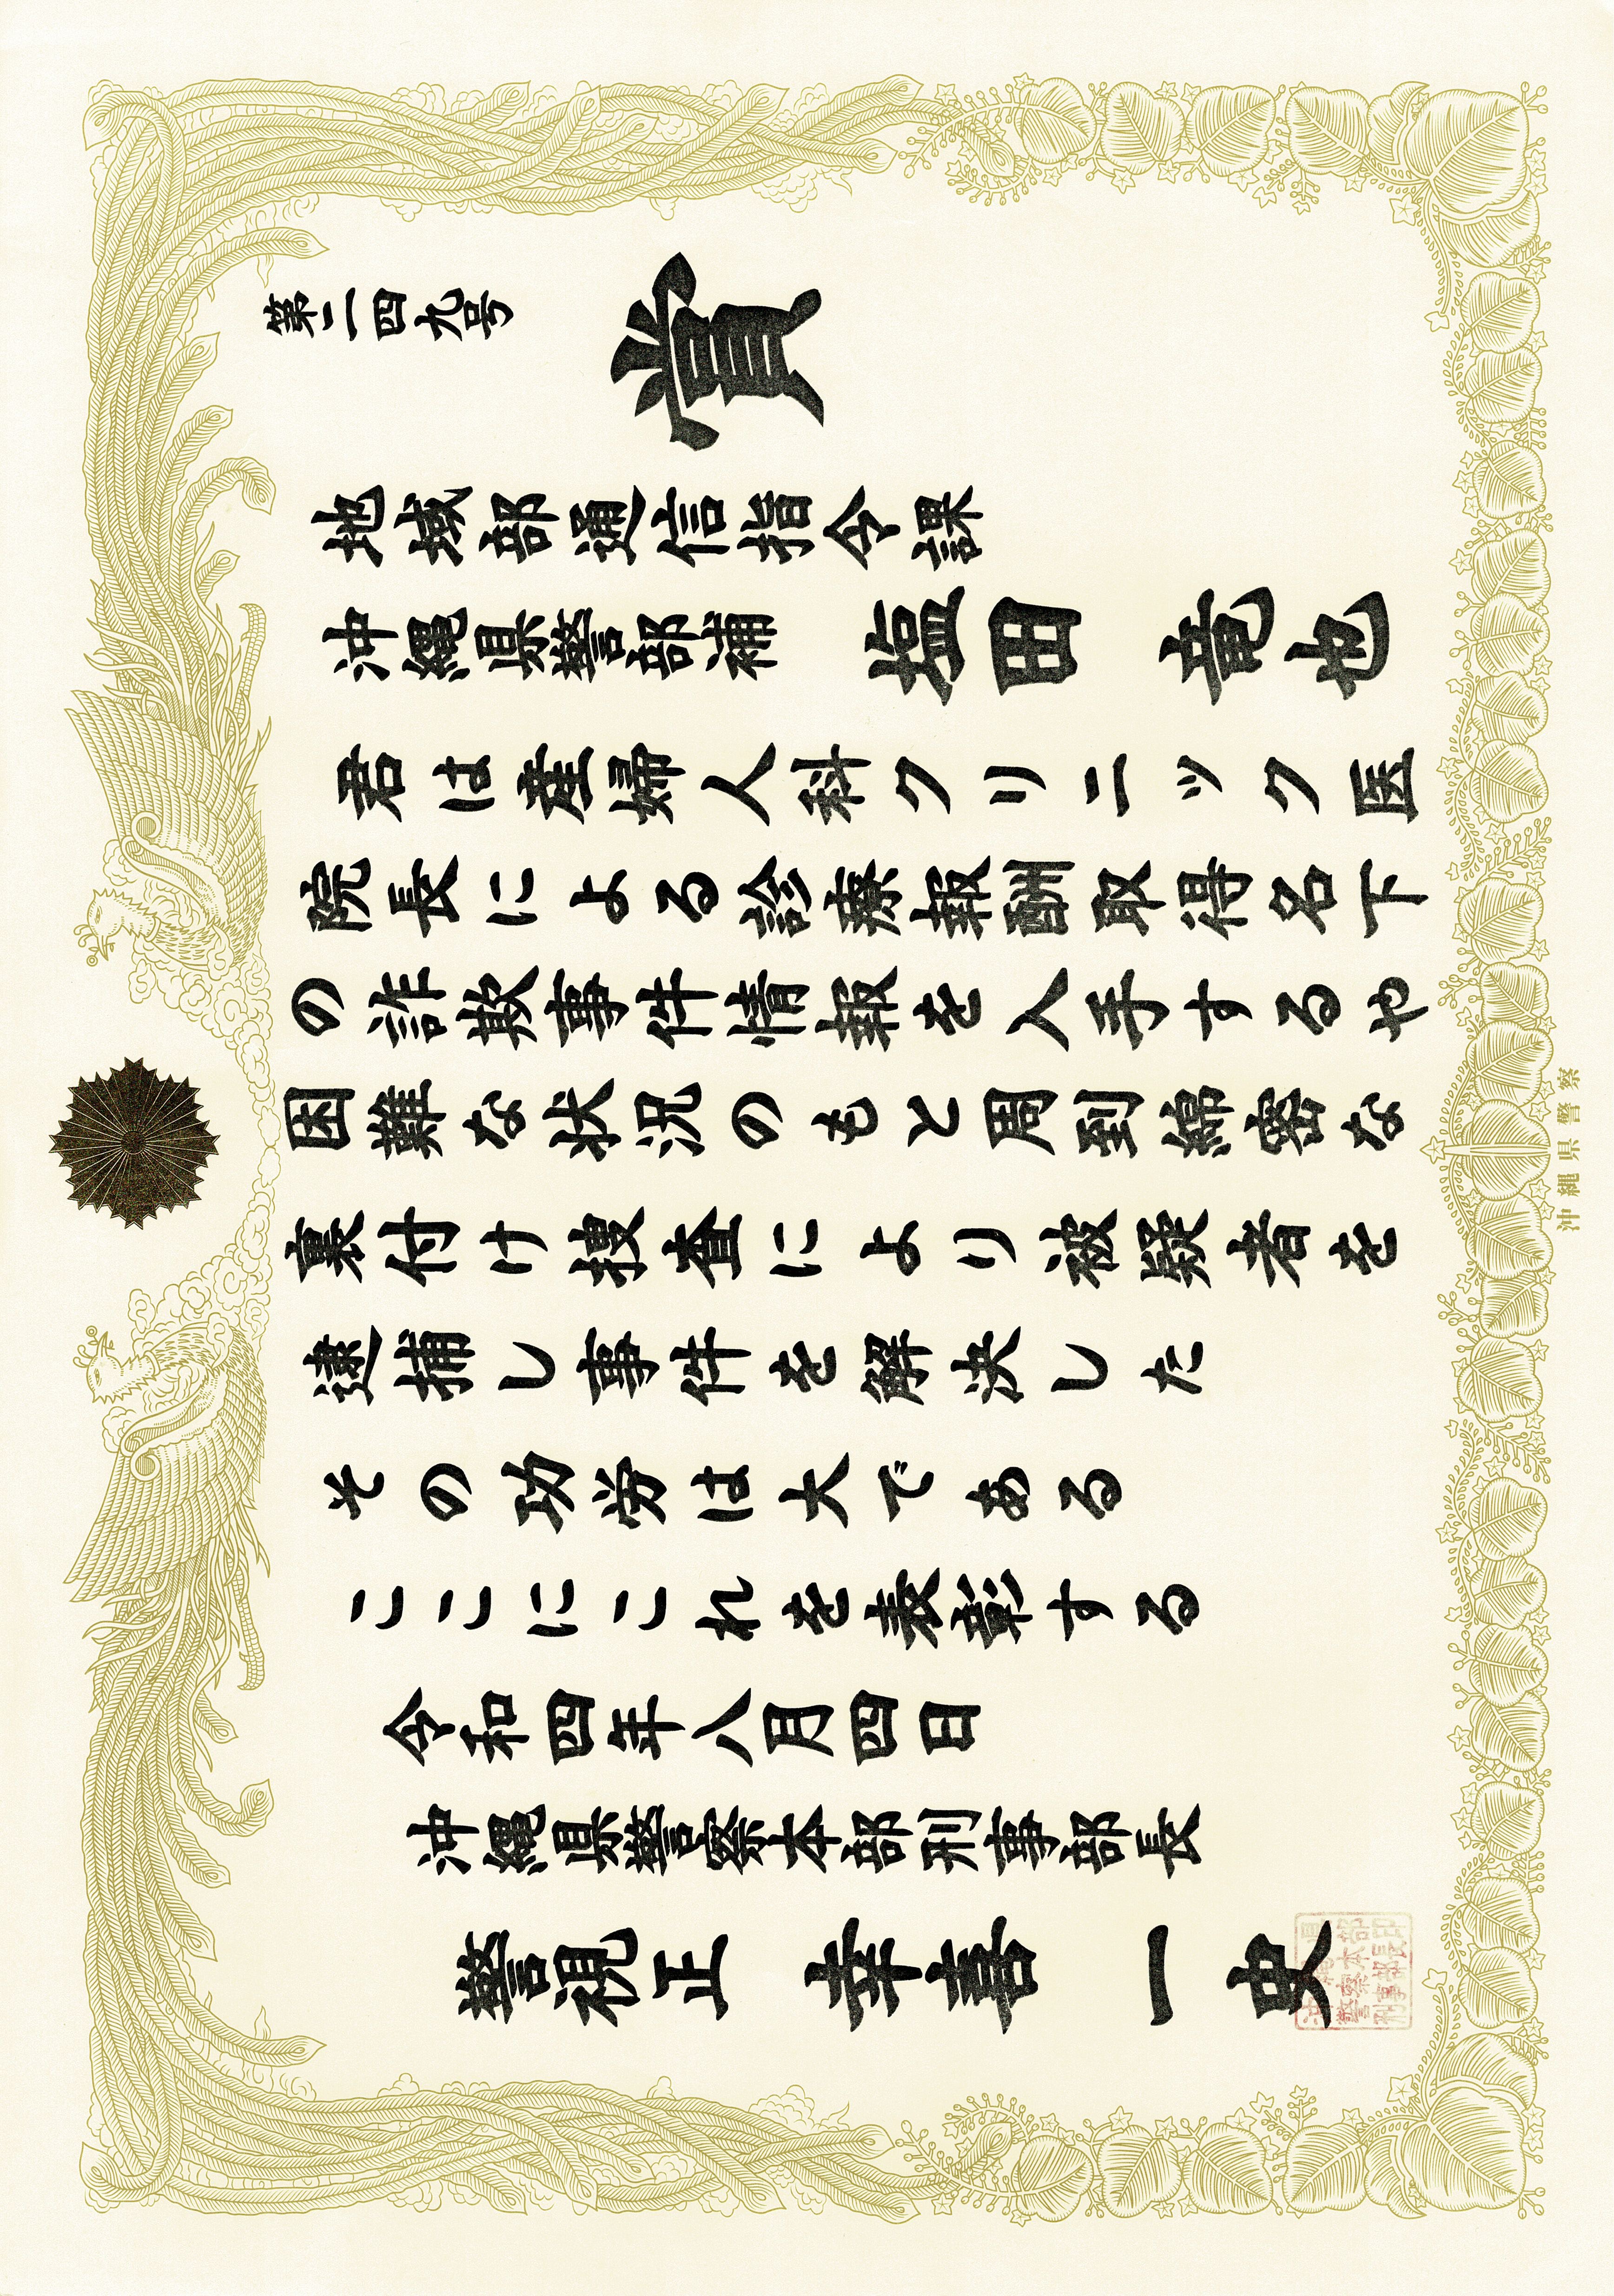 第二四九号
賞
地域部通信指令課
沖縄県警部補 塩田 竜也
君は産婦人科クリニック医
院長による診療報酬取得名下
の詐欺事件情報を入手するや
困難な状況のもと周到綿密な
裏付け捜査により被疑者を
逮捕し事件を解決した
その功労は大である
ここにこれを表彰する
令和四年八月四日
沖縄県警察本部刑事部長
警視正 幸喜 一史
沖縄県警察